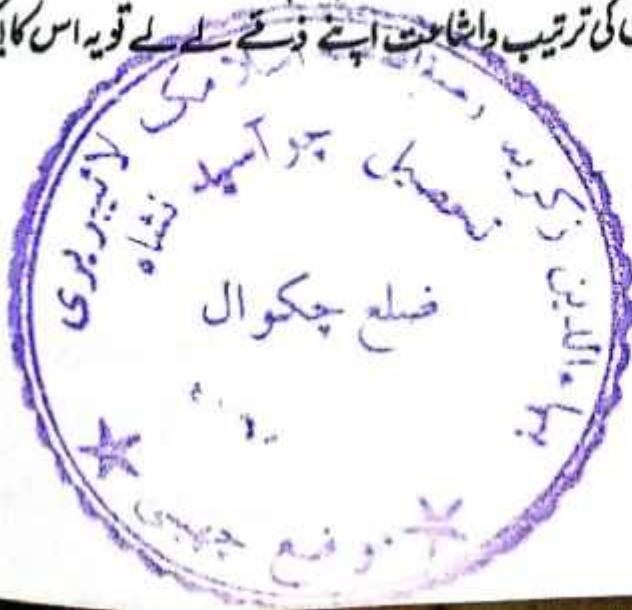 کی ترتیب واشاعت اپنے ذمّے لے لے تو یہ اس کا
بہاءالدین زکریہ لائیبریری
تحصیل چو آسید نشاہ
ضلع چکوال
موضع چھبی